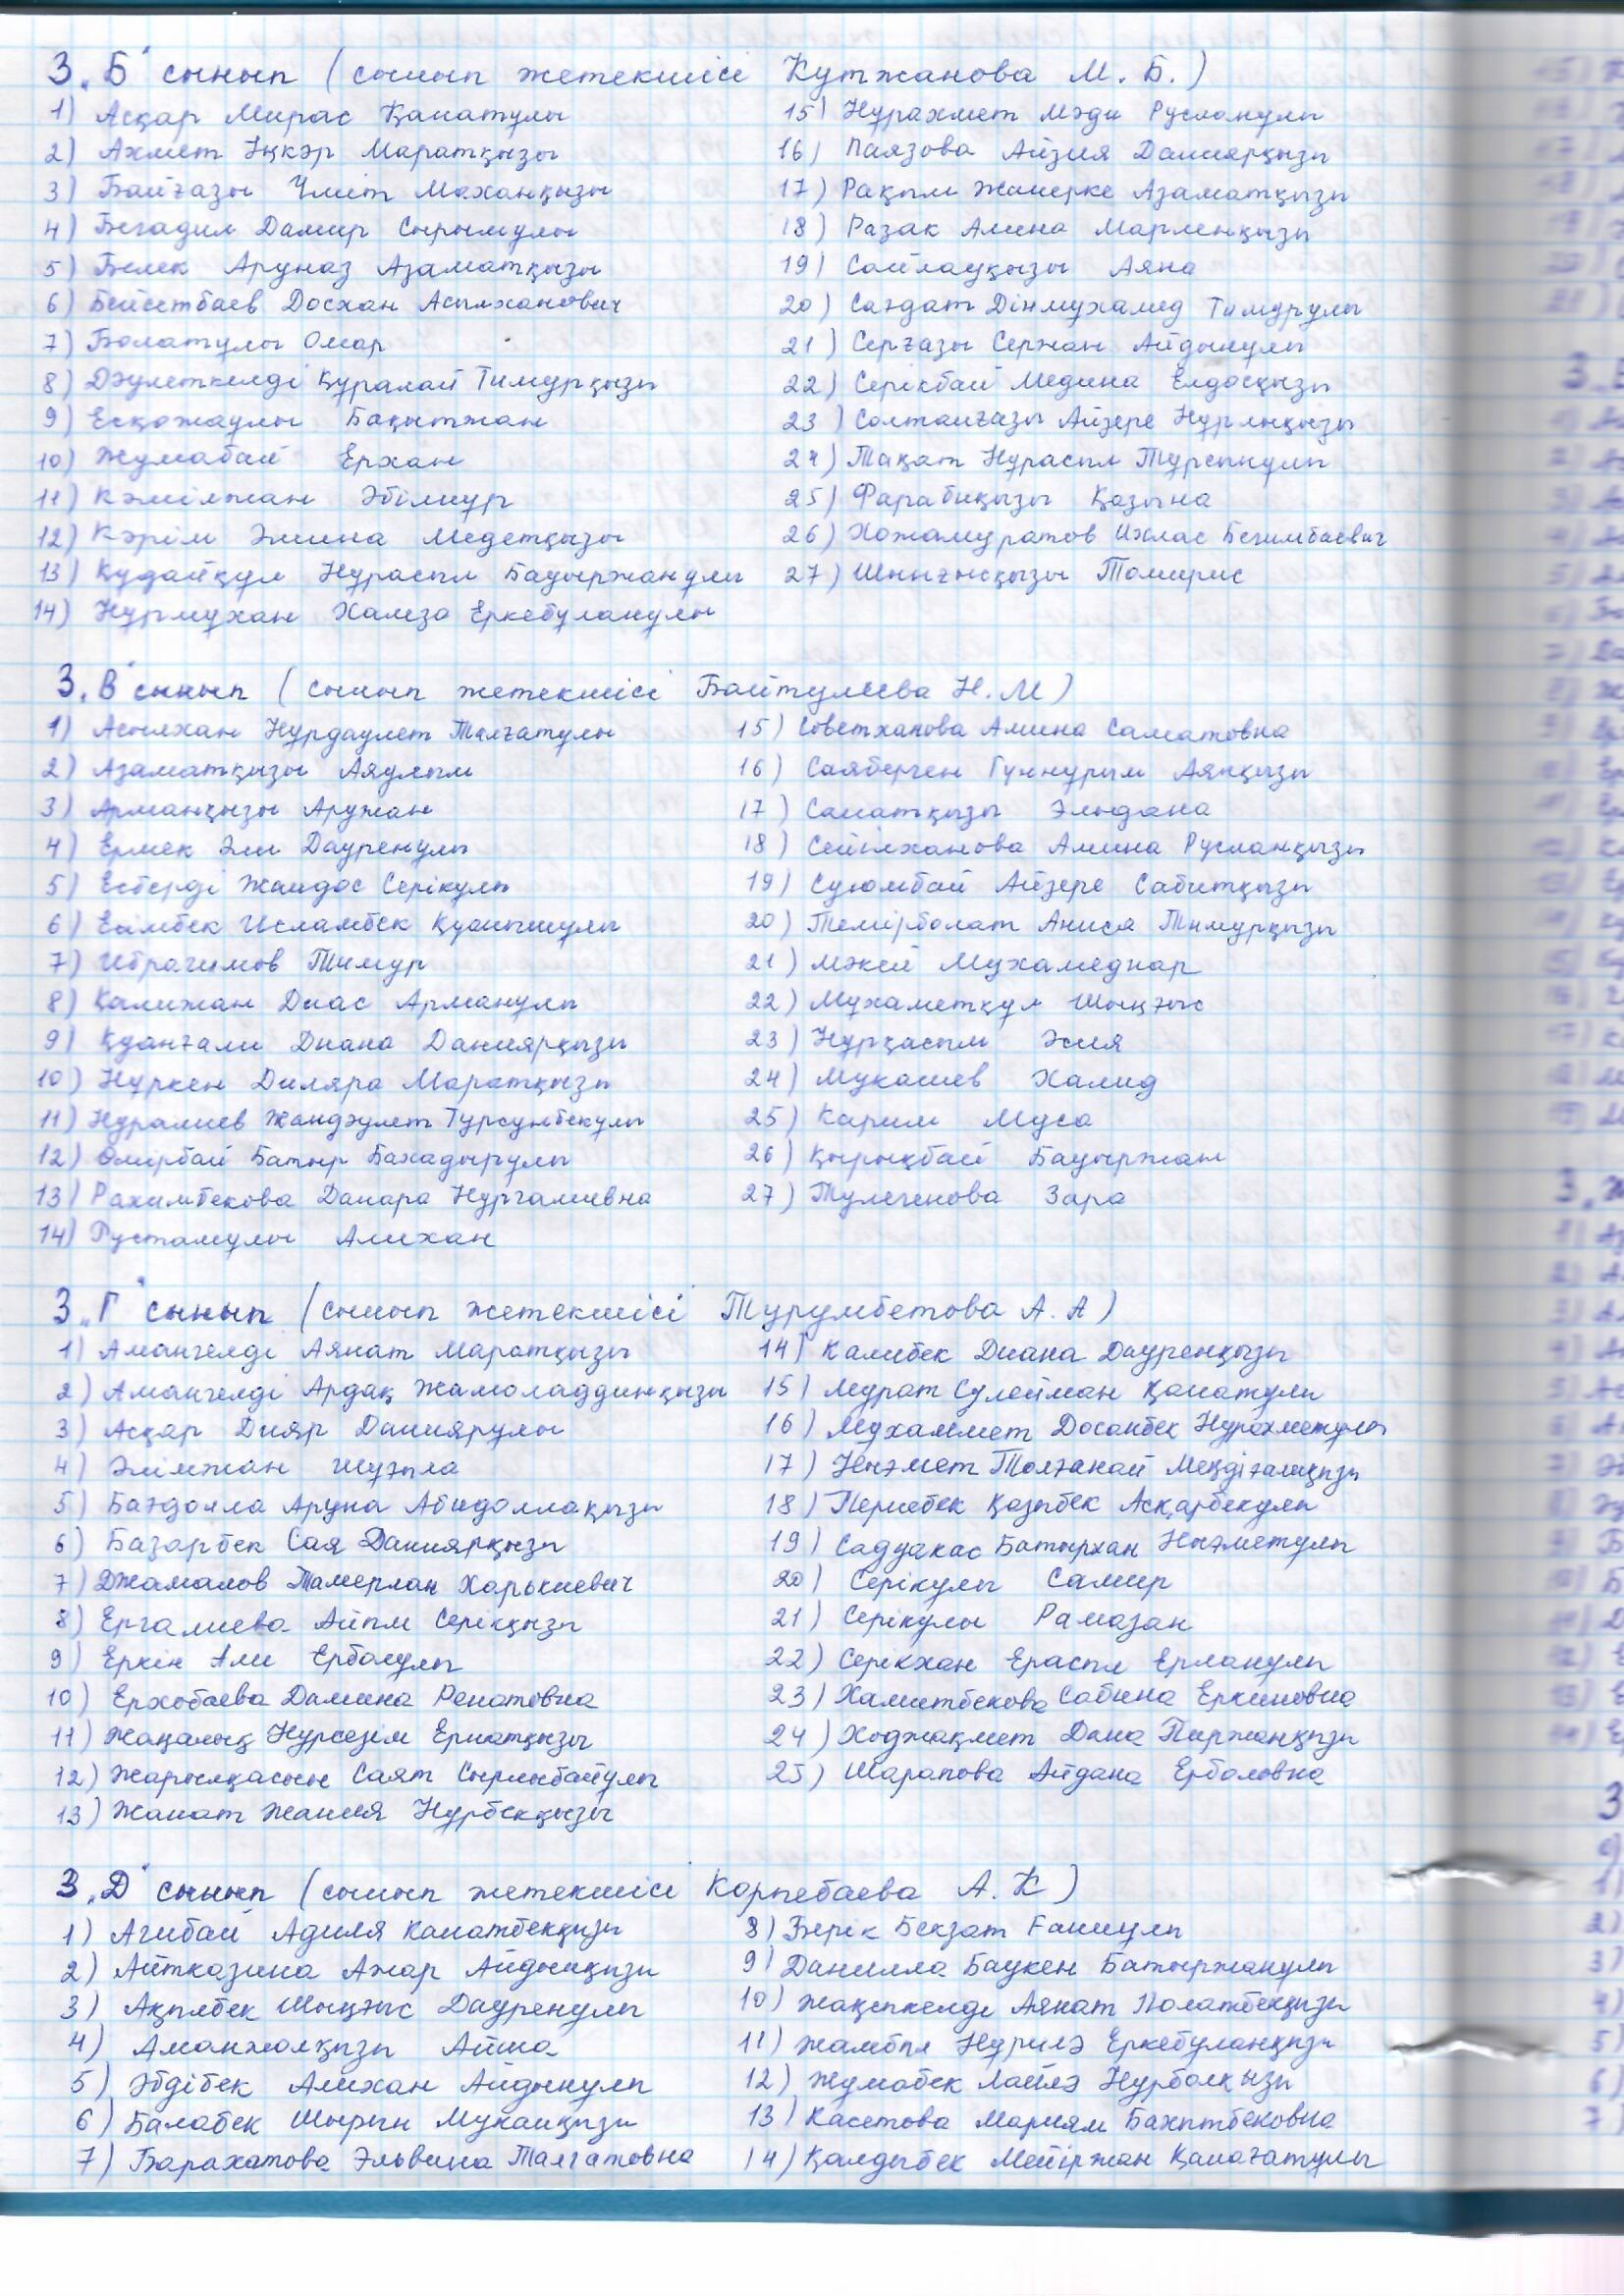 3 „Б" сынып (сынып жетекшісі Кутжанова М. Б.)
1) Асқар Мирас Қанатулы
2) Ахмет Іңкәр Маратқызы
3) Байғазы Үміт Маханқызы
4) Бегадил Дамир Сырымулы
5) Белек Аруназ Азаматқызы
6) Бейсетбаев Досхан Асылханович
7) Болатулы Омар
8) Дәулеткелді Құралай Тимурқызы
9) Есқожаулы Бақытжан
10) Жумабай Ерхан
11) Кәмілжан Әбілнұр
12) Кәрім Әмина Медетқызы
13) Құдайқул Нұрасыл Бауыржанулы
14) Нұрмұхан Хамза Еркебуланулы
15) Нұрахмет Мәди Русланулы
16) Паязова Айзия Даниярқызы
17) Рақым Жанерке Азаматқызы
18) Разак Амина Марленқызы
19) Сайлауқызы Аяна
20) Сағдат Дінмухамед Тимурулы
21) Серғазы Сержан Айдынулы
22) Серікбай Медина Елдосқызы
23) Солтанғазы Айзере Нұрлықызы
24) Тақат Нұрасыл Тұрсынулы
25) Фарабиқызы Қазына
26) Хожамуратов Ихлас Бегимбаевич
27) Шынғысқызы Томирис
3 „В" сынып (сынып жетекшісі Байтулеева Н. М)
1) Асылхан Нұрдаулет Талғатулы
2) Азаматқызы Аяулым
3) Арманқызы Аружан
4) Ермек Әли Дауренулы
5) Есберді Жандос Серікулы
6) Еңімбек Исламбек Қуанышулы
7) Ибрагимов Тимур
8) Қалижан Диас Арманулы
9) Қуанғали Диана Даниярқызы
10) Нұркен Диляра Маратқызы
11) Нұралиев Жандәулет Турсунбекулы
12) Өмірбай Батыр Бахадырулы
13) Рахимбекова Данара Нургалиевна
14) Рустамулы Алихан
15) Советханова Амина Саматовна
16) Саяберген Гүлнурым Аянқызы
17) Саматқызы Эльдана
18) Сейілханова Амина Русланқызы
19) Суюмбай Айзере Сабитқызы
20) Темірболат Аниса Тимурқызы
21) Мәкей Мухамеднар
22) Мұхаметқул Шыңғыс
23) Нұрқасым Әсия
24) Мукашев Халид
25) Карим Муса
26) Қырықбай Бауыржан
27) Тулегенова Зара
3 „Г" сынып (сынып жетекшісі Турумбетова А. А)
1) Амангелді Аянат Маратқызы
2) Амангелді Ардақ Жамоладдинқызы
3) Асқар Дияр Даниярулы
4) Әлімжан Шуғыла
5) Бағдолла Аруна Абидоллақызы
6) Базарбек Сая Даниярқызы
7) Джамалов Тамерлан Харькиевич
8) Ергалиева Айым Серікқызы
9) Еркін Али Ерболулы
10) Ерхобаева Дамина Ренатовна
11) Жаңалық Нұрсезім Ернатқызы
12) Жарылқасын Саят Сырлыбайулы
13) Жанат Жания Нұрбекқызы
14) Калибек Диана Дауренқызы
15) Мурат Сулейман Қанатулы
16) Мұхаммет Досанбек Нурахметулы
17) Нығмет Толғанай Меңдіғалиқызы
18) Пернебек Қазыбек Асқарбекулы
19) Садуакас Батырхан Нығметулы
20) Серікулы Самир
21) Серікулы Рамазан
22) Серікхан Ерасыл Ерланулы
23) Хамитбекова Сабина Еркиновна
24) Ходжахмет Дана Пиржанқызы
25) Шарапова Айдана Ерболовна
3 „Д" сынып (сынып жетекшісі Корпебаева А. К)
1) Агибай Адиля Канатбекқызы
2) Айтказина Ажар Айдынқызы
3) Ақылбек Шыңғыс Дауренулы
4) Аманжолқызы Айша
5) Әбдібек Алихан Айдынулы
6) Балабек Шырын Муканқызы
7) Барахатова Эльвина Талгатовна
8) Берік Бекзат Ғаниулы
9) Данилла Баукен Батыржанулы
10) Жақыпкелді Аянат Полатбекқызы
11) Жамбыл Нұрилә Еркебуланқызы
12) Жумабек Лайлә Нұрболқызы
13) Касетова Мариям Бахытбековна
14) Қалдыбек Мейіржан Қанағатулы